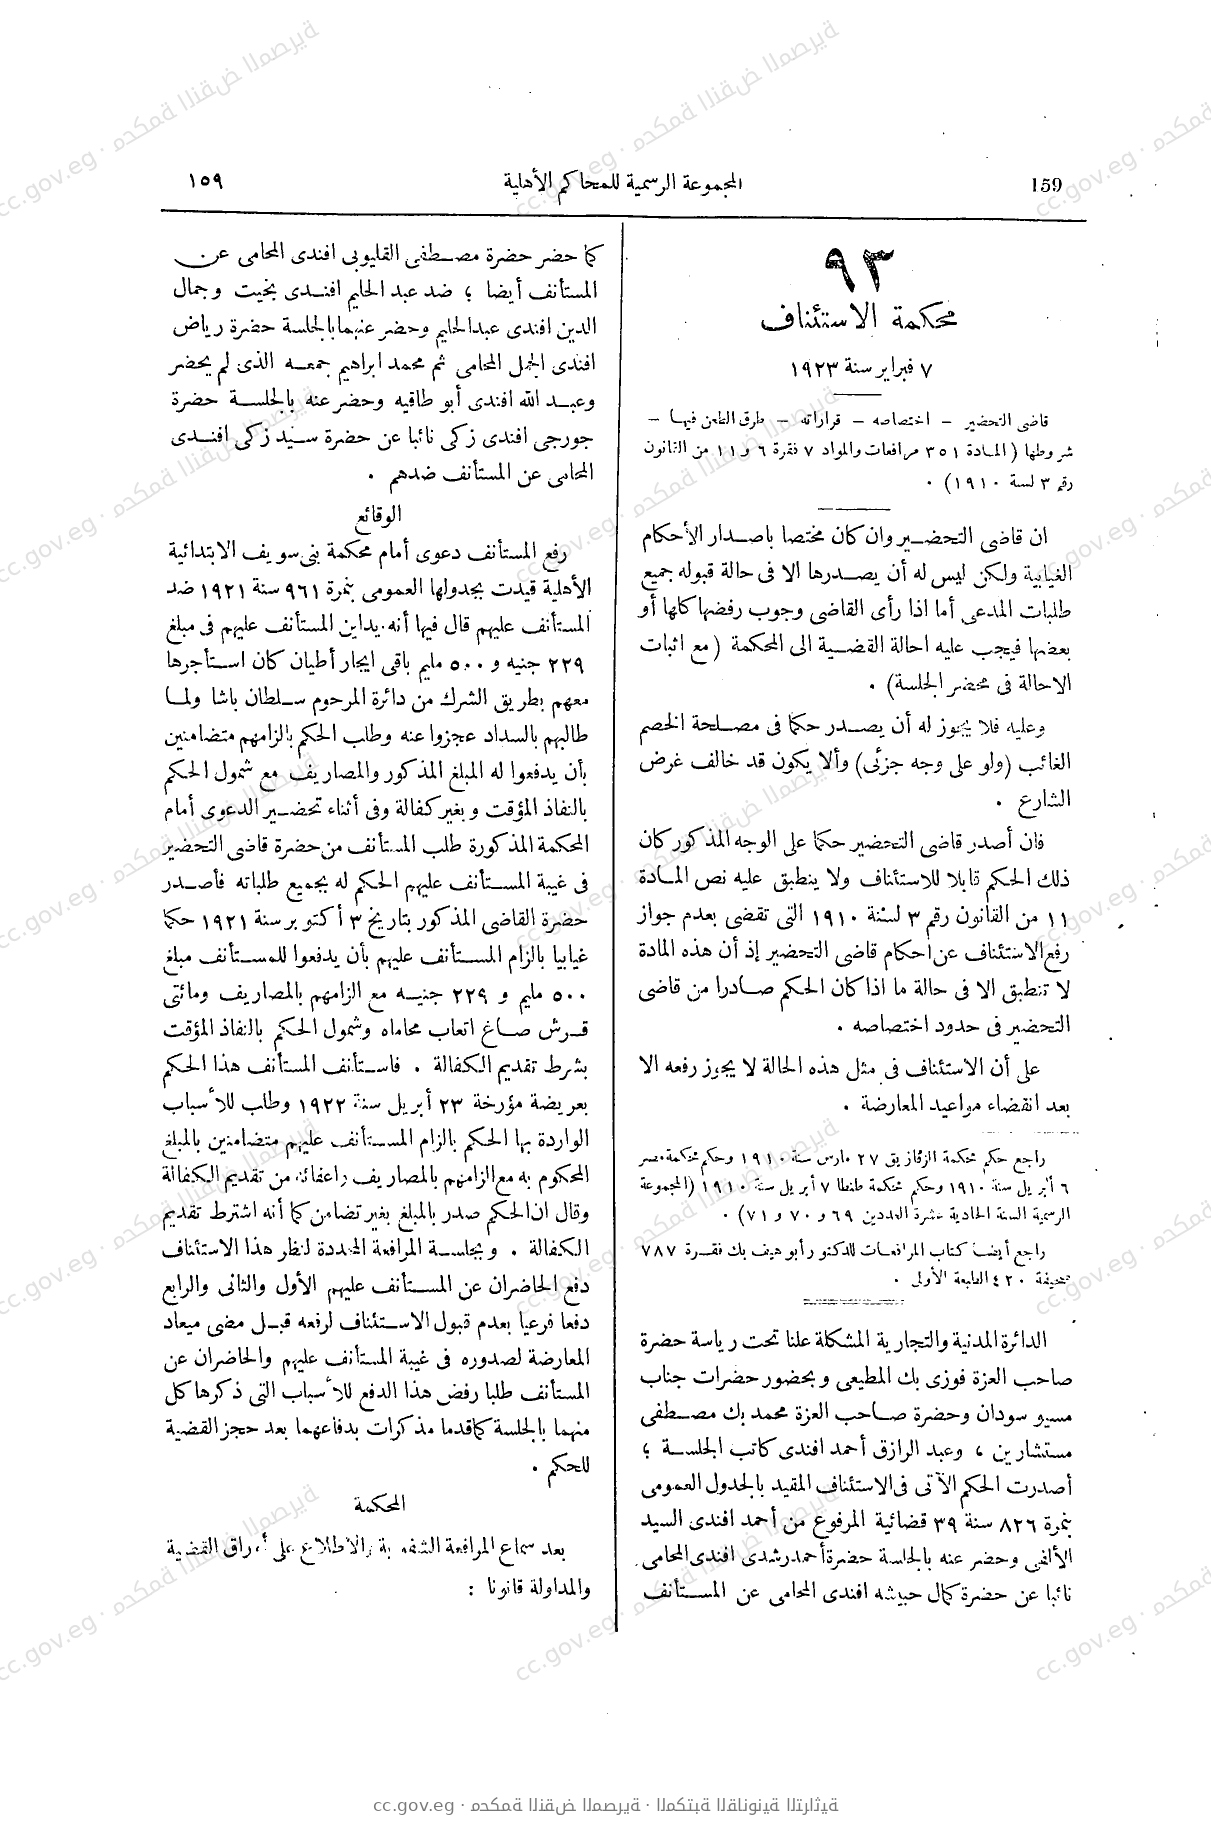 159
المجموعة الرسمية للمحاكم الأهلية
١٥٩
٩٣
محكمة الاستئناف
٧ فبراير سنة ١٩٢٣
قاضى التحضير – اختصاصه – قراراته – طرق الطعن فيها –
شروطها (المادة ٣٥١ مرافعات والمواد ٧ فقرة ٦ و ١١ من القانون
رقم ٣ لسنة ١٩١٠) .
ان قاضى التحضير وان كان مختصا باصدار الأحكام
الغيابية ولكن ليس له أن يصدرها الا فى حالة قبوله جميع
طلبات المدعى أما اذا رأى القاضى وجوب رفضها كلها أو
بعضها فيجب عليه احالة القضية الى المحكمة (مع اثبات
الاحالة فى محضر الجلسة) .
وعليه فلا يجوز له أن يصدر حكما فى مصلحة الخصم
الغائب (ولو على وجه جزئى) وألا يكون قد خالف غرض
الشارع .
فان أصدر قاضى التحضير حكما على الوجه المذكور كان
ذلك الحكم قابلا للاستئناف ولا ينطبق عليه نص المادة
١١ من القانون رقم ٣ لسنة ١٩١٠ التى تقضى بعدم جواز
رفع الاستئناف عن احكام قاضى التحضير إذ أن هذه المادة
لا تنطبق الا فى حالة ما اذا كان الحكم صادرا من قاضى
التحضير فى حدود اختصاصه .
على أن الاستئناف فى مثل هذه الحالة لا يجوز رفعه الا
بعد انقضاء مواعيد المعارضة .
راجع حكم محكمة الزقازيق ٢٧ مارس سنة ١٩١٠ وحكم محكمة مصر
٦ أبريل سنة ١٩١٠ وحكم محكمة طنطا ٧ أبريل سنة ١٩١٠ (المجموعة
الرسمية السنة الحادية عشرة العددين ٦٩ و ٧٠ و ٧١) .
راجع أيضا كتاب المرافعات للدكتور أبو هيف بك فقرة ٧٨٧
صحيفة ٤٢٠ الطبعة الأولى .
الدائرة المدنية والتجارية المشكلة علنا تحت رياسة حضرة
صاحب العزة فوزى بك المطيعى وبحضور حضرات جناب
مسيو سودان وحضرة صاحب العزة محمد بك مصطفى
مستشارين ، وعبد الرازق أحمد افندى كاتب الجلسة ؛
أصدرت الحكم الآتى فى الاستئناف المقيد بالجدول العمومى
بنمرة ٨٢٦ سنة ٣٩ قضائية المرفوع من أحمد افندى السيد
الألفى وحضر عنه بالجلسة حضرة أحمد رشدى افندى المحامى
نائبا عن حضرة كمال حبيشه افندى المحامى عن المستأنف
كما حضر حضرة مصطفى القليوبى افندى المحامى عن
المستأنف أيضا ؛ ضد عبد الحليم افندى بخيت وجمال
الدين افندى عبد الحليم وحضر عنهما بالجلسة حضرة رياض
افندى الجمل المحامى ثم محمد ابراهيم جمعه الذى لم يحضر
وعبد الله افندى أبو طاقيه وحضر عنه بالجلسة حضرة
جورجى افندى زكى نائبا عن حضرة سيد زكى افندى
المحامى عن المستأنف ضدهم .
الوقائع
رفع المستأنف دعوى أمام محكمة بنى سويف الابتدائية
الأهلية قيدت بجدولها العمومى بنمرة ٩٦١ سنة ١٩٢١ ضد
المستأنف عليهم قال فيها أنه يداين المستأنف عليهم فى مبلغ
٢٢٩ جنيه و ٥٠٠ مليم باقى ايجار أطيان كان استأجرها
معهم بطريق الشرك من دائرة المرحوم سلطان باشا ولما
طالبهم بالسداد عجزوا عنه وطلب الحكم بالزامهم متضامنين
بأن يدفعوا له المبلغ المذكور والمصاريف مع شمول الحكم
بالنفاذ المؤقت وبغير كفالة وفى أثناء تحضير الدعوى أمام
المحكمة المذكورة طلب المستأنف من حضرة قاضى التحضير
فى غيبة المستأنف عليهم الحكم له بجميع طلباته فأصدر
حضرة القاضى المذكور بتاريخ ٣ أكتوبر سنة ١٩٢١ حكما
غيابيا بالزام المستأنف عليهم بأن يدفعوا للمستأنف مبلغ
٥٠٠ مليم و ٢٢٩ جنيه مع الزامهم بالمصاريف ومائتى
قرش صاغ اتعاب محاماه وشمول الحكم بالنفاذ المؤقت
بشرط تقديم الكفالة . فاستأنف المستأنف هذا الحكم
بعريضة مؤرخة ٢٣ أبريل سنة ١٩٢٢ وطلب للأسباب
الواردة بها الحكم بالزام المستأنف عليهم متضامنين بالمبلغ
المحكوم به مع الزامهم بالمصاريف واعفائه من تقديم الكفالة
وقال ان الحكم صدر بالمبلغ بغير تضامن كما أنه اشترط تقديم
الكفالة . وبجلسة المرافعة المحددة لنظر هذا الاستئناف
دفع الحاضران عن المستأنف عليهم الأول والثانى والرابع
دفعا فرعيا بعدم قبول الاستئناف لرفعه قبل مضى ميعاد
المعارضة لصدوره فى غيبة المستأنف عليهم والحاضران عن
المستأنف طلبا رفض هذا الدفع للأسباب التى ذكرها كل
منهما بالجلسة كما قدما مذكرات بدفاعهما بعد حجز القضية
للحكم .
المحكمة
بعد سماع المرافعة الشفهية والاطلاع على أوراق القضية
والمداولة قانونا :
cc.gov.eg · محكمة النقض المصرية · المكتبة القانونية التراثية